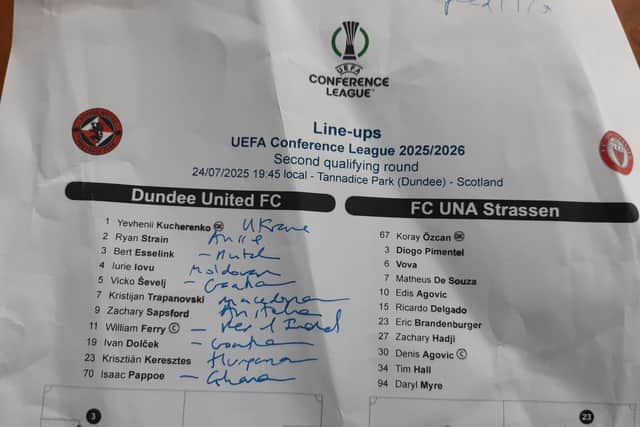 UEFA
CONFERENCE
LEAGUE
Line-ups
UEFA Conference League 2025/2026
Second qualifying round
24/07/2025 19:45 local - Tannadice Park (Dundee) - Scotland
Dundee United FC
1 Yevhenii Kucherenko GK Ukrane
2 Ryan Strain
3 Bert Esselink - Dutch
4 Iurie Iovu Moldovan
5 Vicko Ševelj - Croatia
7 Kristijan Trapanovski Macedonia
9 Zachary Sapsford Australia
11 William Ferry C -
19 Ivan Dolček - Croatia
23 Krisztián Keresztes Hungarian
70 Isaac Pappoe - Ghana
3
FC UNA Strassen
67 Koray Özcan GK
3 Diogo Pimentel
6 Vova
7 Matheus De Souza
10 Edis Agovic
15 Ricardo Delgado
23 Eric Brandenburger
27 Zachary Hadji
30 Denis Agovic C
34 Tim Hall
94 Daryl Myre
23